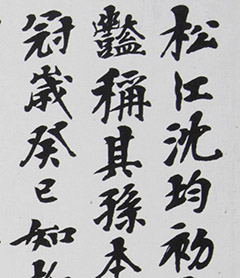 松江沈均初
豔稱其孫本
冠歲癸巳知